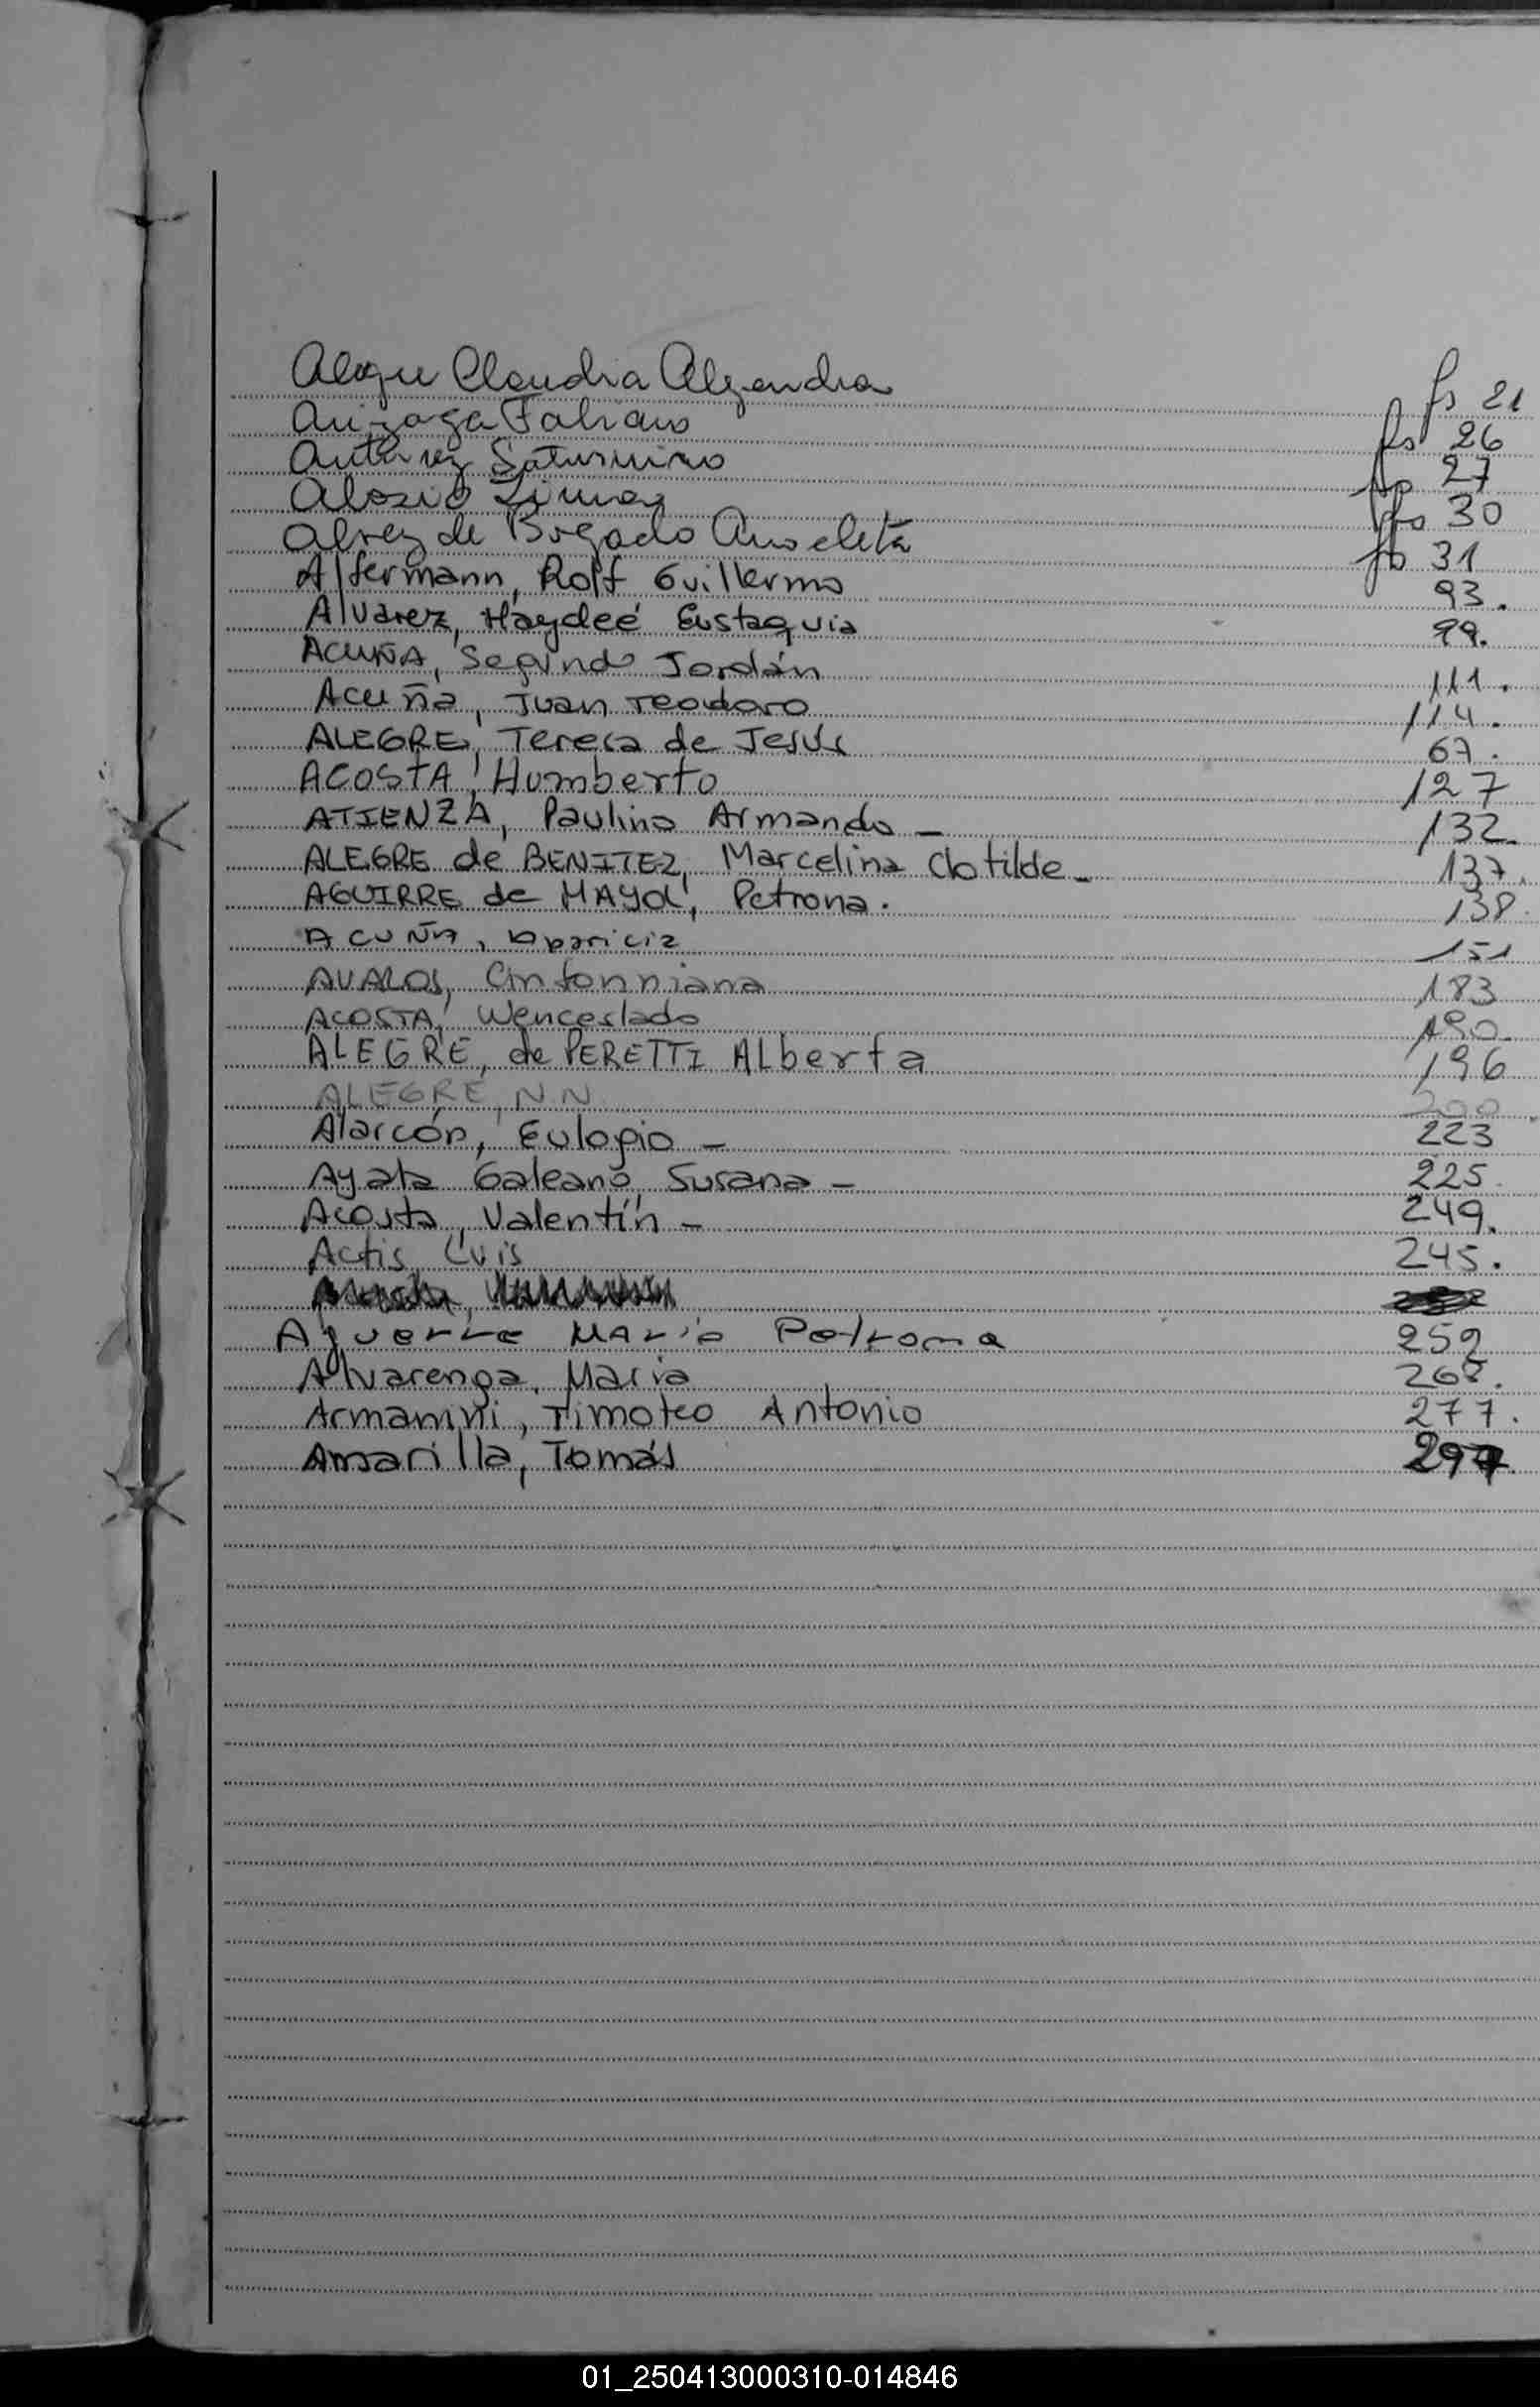 Alegre Claudia Alejandra fs 21
Arizaga Fabiano fs 26
Antunez Saturnino fs 27
fs 30
Alvez de Bogado Anacleta fs 31
Alfermann, Rolf Guillermo 93.
Alvarez, Haydeé Eustaquia 99.
ACUÑA, Segundo Jordán 111.
Acuña, Juan Teodoro 114.
ALEGRE, Teresa de Jesús 67.
ACOSTA, Humberto 127
ATIENZA, Paulino Armando - 132
ALEGRE de BENITEZ, Marcelina Clotilde - 137.
AGUIRRE de MAYOL, Petrona. 138.
ACUÑA, Aparicia 151
AVALOS, Antonniana 183
ACOSTA, Wenceslado 190
ALEGRE, de PERETTI Alberta 196
ALEGRE, N.N 200
Alarcón, Eulogio - 223
Ayala Galeano, Susana - 225.
Acosta, Valentín - 249.
Actis, Luis 245.
Aguerre Maria Petrona 259
Alvarenga, Maria 268.
Armanini, Timoteo Antonio 277.
Amarilla, Tomás 297.
01_250413000310-014846